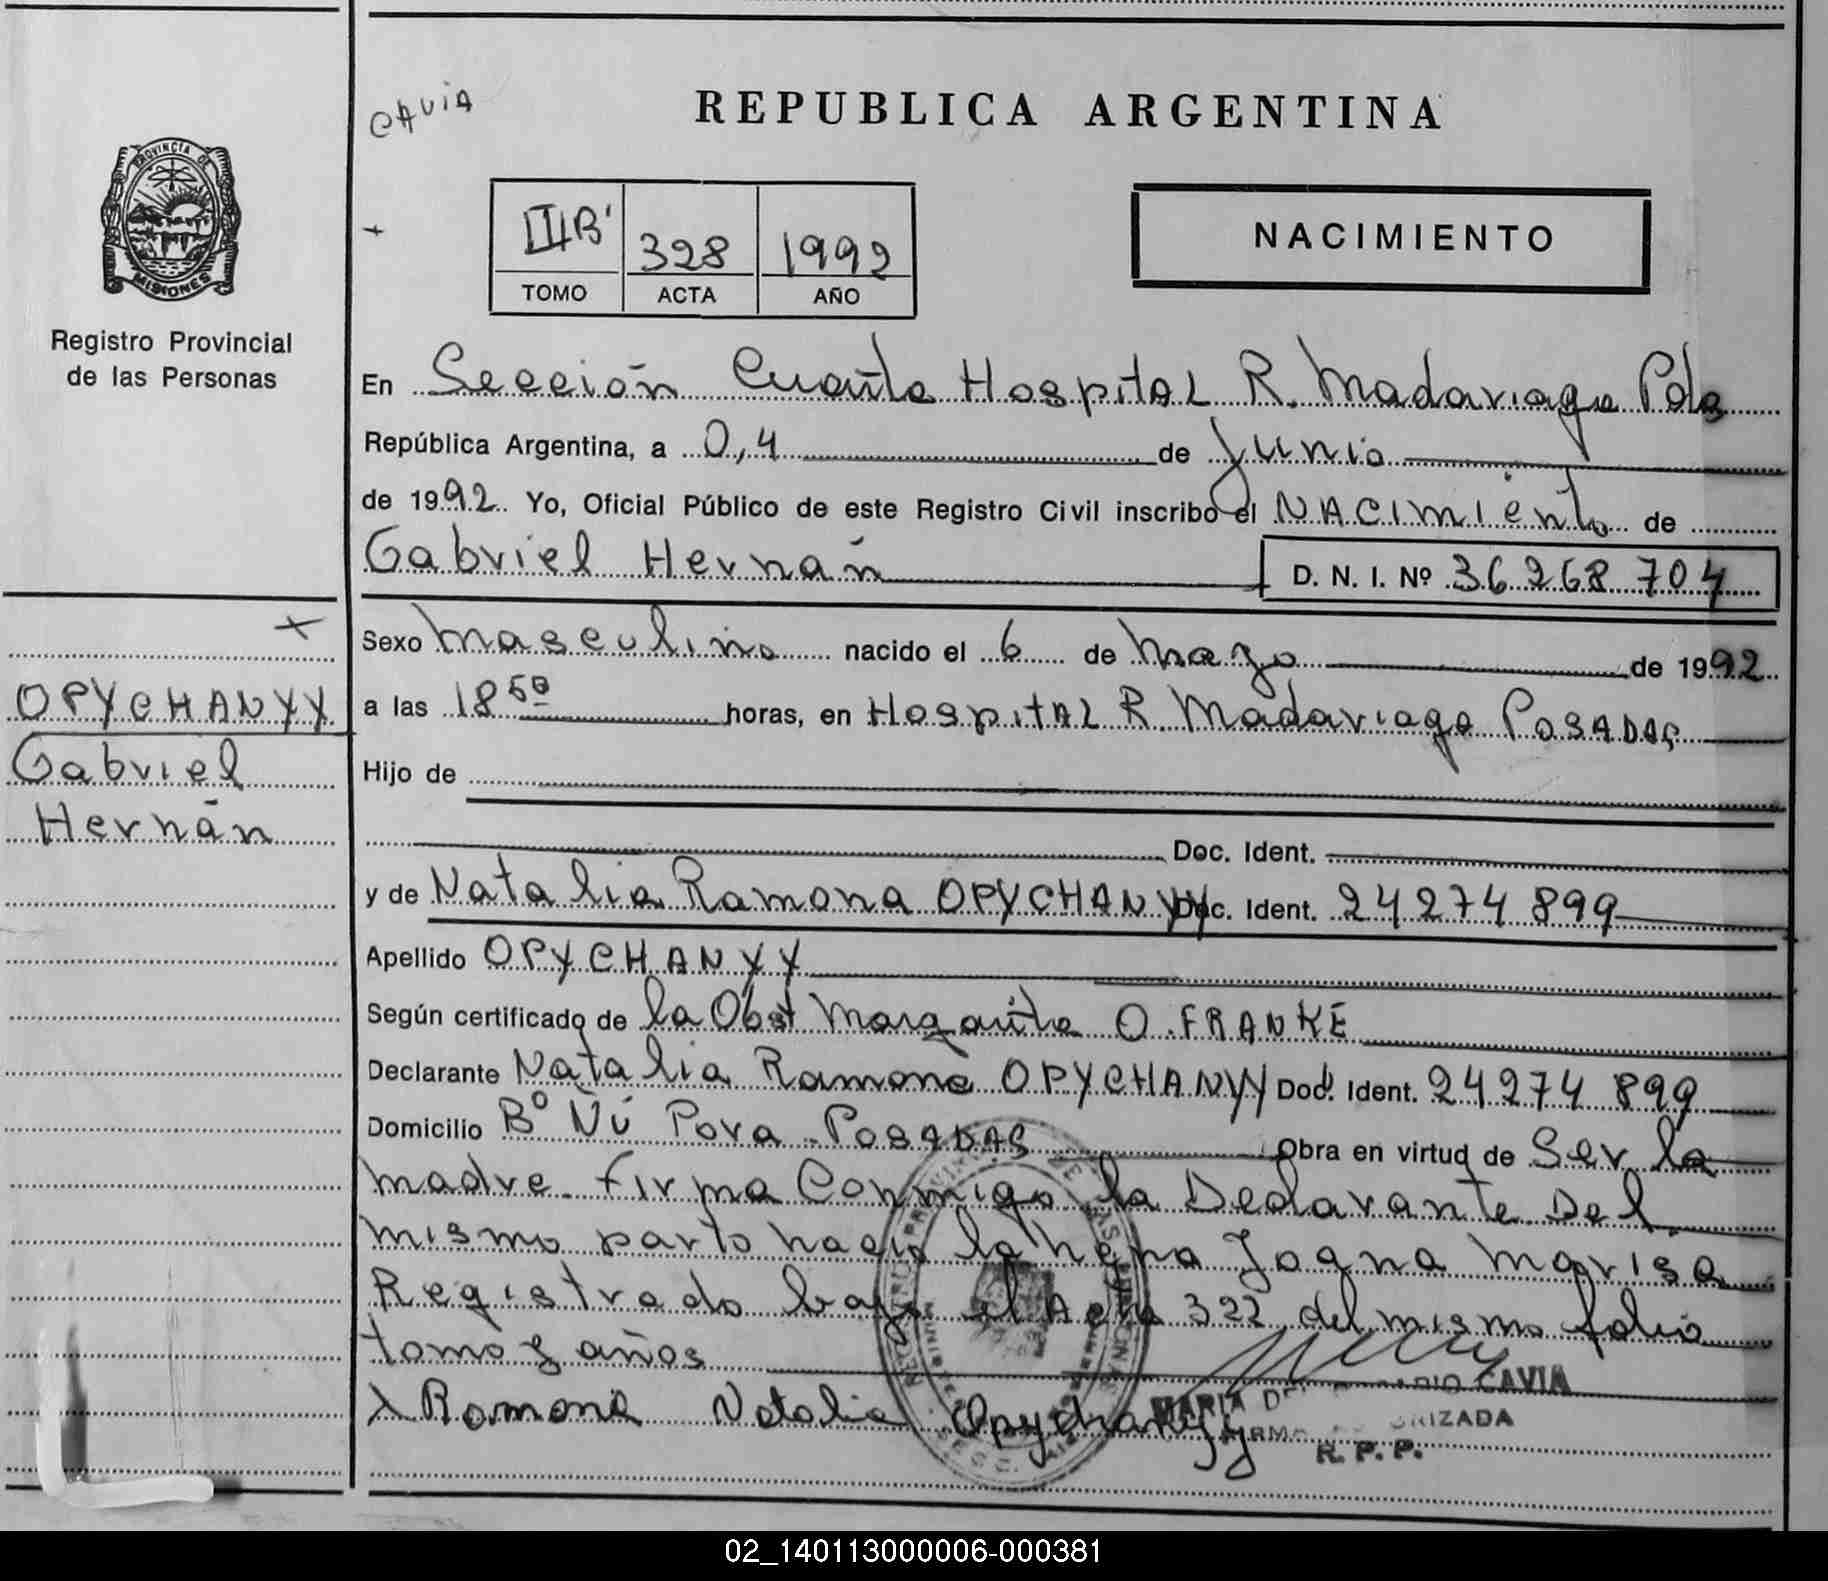 CAVIA
REPUBLICA ARGENTINA
PROVINCIA DE
MISIONES
Registro Provincial
de las Personas
III B' 328 1992
TOMO ACTA AÑO
NACIMIENTO
En Sección Cuarta Hospital R. Madariaga Pdas
República Argentina, a 04 de Junio
de 1992. Yo, Oficial Público de este Registro Civil inscribo el NACIMIENTO de
Gabriel Hernán D. N. I. Nº 36268704
Sexo Masculino nacido el 6 de Mayo de 1992
a las 18 50 horas, en Hospital R Madariaga POSADAS
Hijo de
Doc. Ident.
y de Natalia Ramona OPYCHANYY Doc. Ident. 24274899
Apellido OPYCHANYY
Según certificado de la Obst Margarita O. FRANKE
Declarante Natalia Ramona OPYCHANYY Doc. Ident. 24274899
Domicilio Bº Ñú Pora - POSADAS Obra en virtud de Ser la
madre. firma Conmigo la Declarante Del
mismo parto nacio la Marisa
Registrado bajo el Acta 322 del mismo folio
tomo y años
X Ramona Natalia Opychanyy
MARIA DEL CAVIA
FIRMA AUTORIZADA
R. P. P.
OPYCHANYY
Gabriel
Hernán
02_140113000006-000381